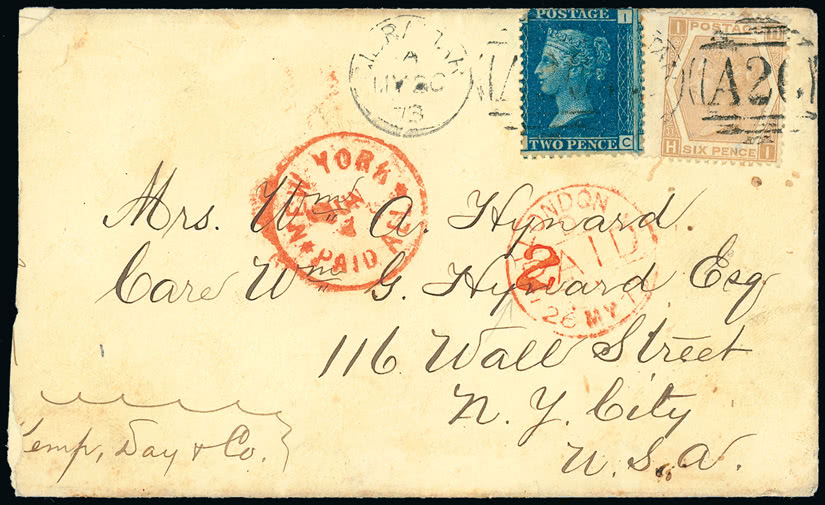 POSTAGE
I
TWO PENCE
C
I
POSTAGE
H
SIX PENCE
I
A
MY 20
73
A26
NEW YORK
PAID ALL
LONDON
PAID
26 MY 7
2
Mrs. Wm A. Hyward
Care Wm G. Hyward Esq
116 Wall Street
N. Y. City
U. S. a.
Day & Co.